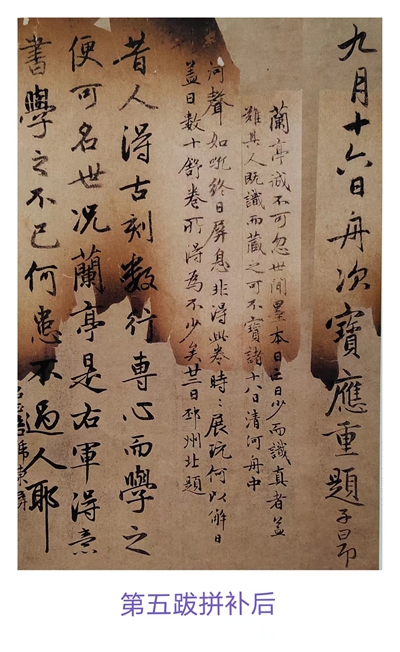 九月十六日舟次寶應重題子昂
蘭亭誠不可忽世間墨本日亡日少而識真者蓋
難其人既識而藏之可不寶諸十八日清河舟中
河聲如吼終日屏息非得此卷時〻展玩何以解日
蓋日數十舒卷所得為不少矣廿二日邳州北題
昔人得古刻數行專心而學之
便可名世況蘭亭是右軍得意
書學之不已何患不過人耶
第五跋拼补后